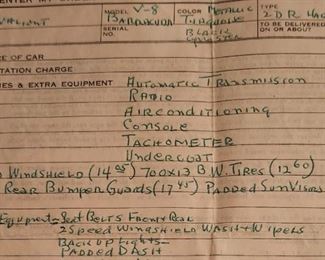 MODEL V-8 COLOR METALLIC TYPE
VALIANT BARRACUDA TURQUOISE 2 DR HA
SERIAL NO. BLACK TO BE DELIVERED ON OR ABOUT
CE OF CAR
TATION CHARGE
IES & EXTRA EQUIPMENT AUTOMATIC TRANSMISSION
RADIO
AIRCONDITIONING
CONSOLE
TACHOMETER
UNDERCOAT
WINDSHIELD (14 05) 700X13 B.W. TIRES (12 60)
REAR BUMPER GUARDS (17 45) PADDED SUN VISORS
EQUIPMENT- SEAT BELTS FRONT & REAR
2 SPEED WINDSHIELD WASH & WIPERS
BACK UP LIGHTS
PADDED DASH